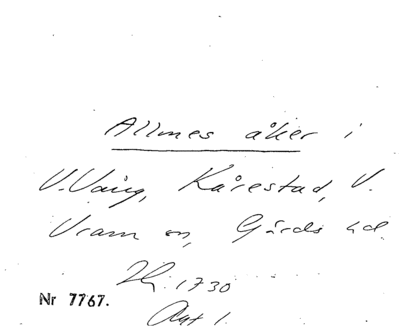 Allmes åker i
V. Vång, Kårestad, V.
Vram sn, Gärds hd.
1730
Nr 7767.
Akt 1.